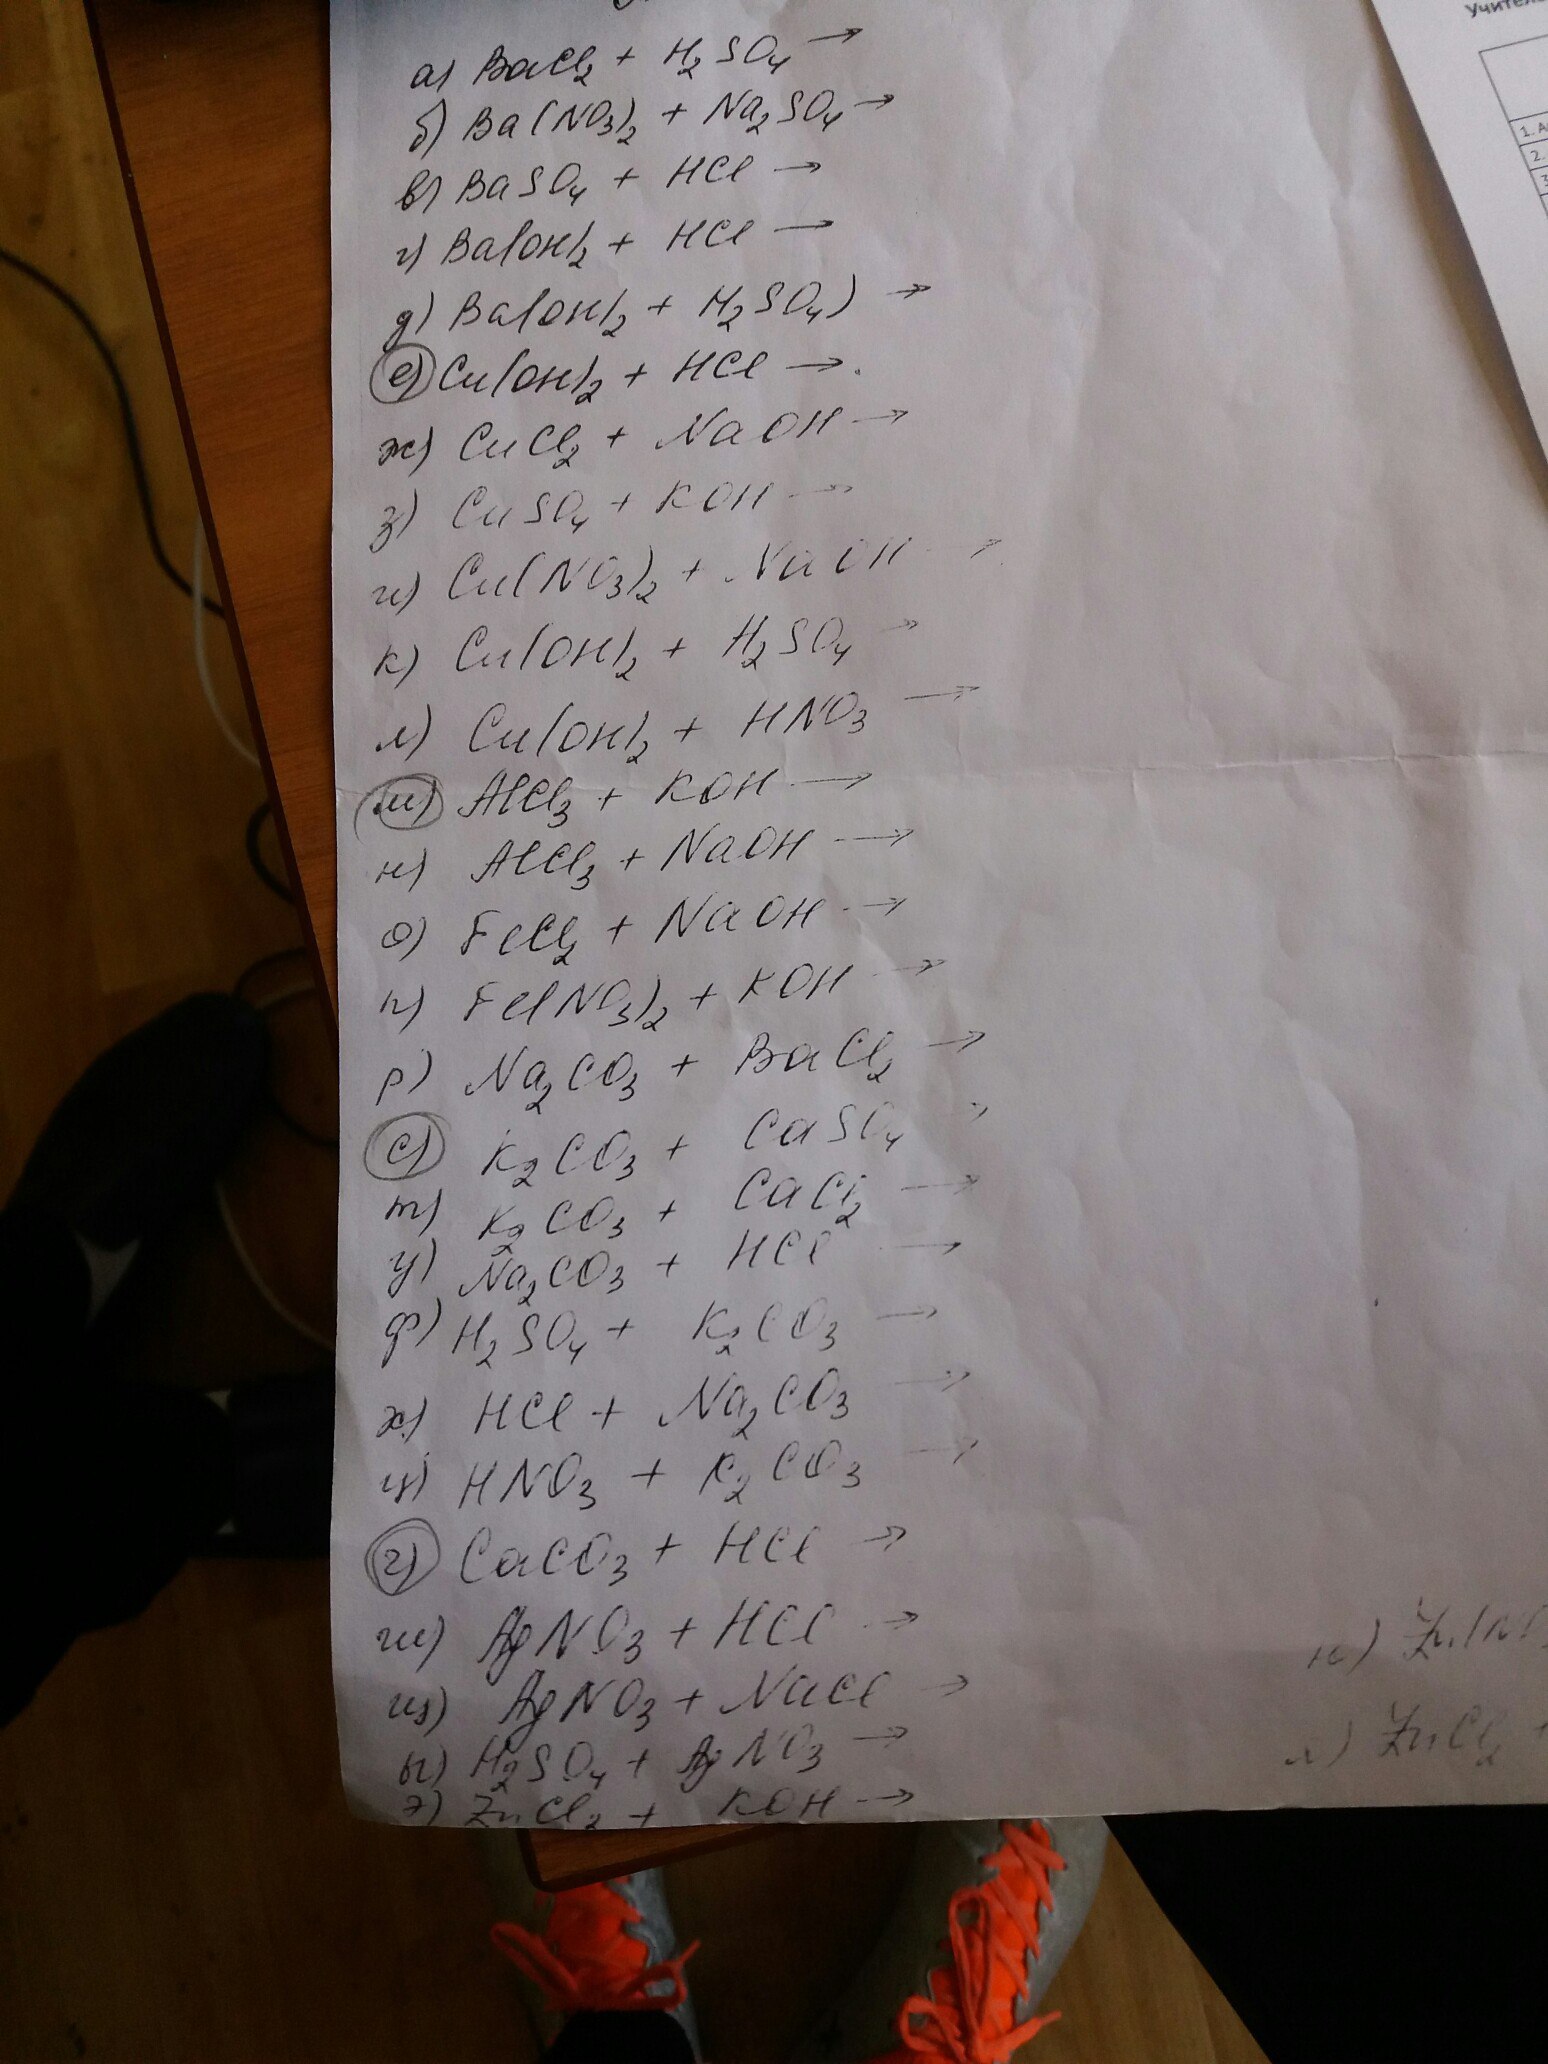 а) BaCl₂ + H₂SO₄ →
б) Ba(NO₃)₂ + Na₂SO₄ →
в) BaSO₄ + HCl →
г) Ba(OH)₂ + HCl →
д) Ba(OH)₂ + H₂SO₄) →
е) Cu(OH)₂ + HCl →.
ж) CuCl₂ + NaOH →
з) CuSO₄ + KOH →
и) Cu(NO₃)₂ + NaOH →
к) Cu(OH)₂ + H₂SO₄ →
л) Cu(OH)₂ + HNO₃ →
м) AlCl₃ + KOH →
н) AlCl₃ + NaOH →
о) FeCl₂ + NaOH →
п) Fe(NO₃)₂ + KOH →
р) Na₂CO₃ + BaCl₂ →
с) K₂CO₃ + CaSO₄ →
т) K₂CO₃ + CaCl₂ →
у) Na₂CO₃ + HCl →
ф) H₂SO₄ + K₂CO₃ →
х) HCl + Na₂CO₃ →
ц) HNO₃ + K₂CO₃ →
ч) CaCO₃ + HCl →
ш) AgNO₃ + HCl →
щ) AgNO₃ + NaCl →
ы) H₂SO₄ + AgNO₃ →
э) ZnCl₂ + KOH →
л) ZnCl₂ +
1. А
2.
3